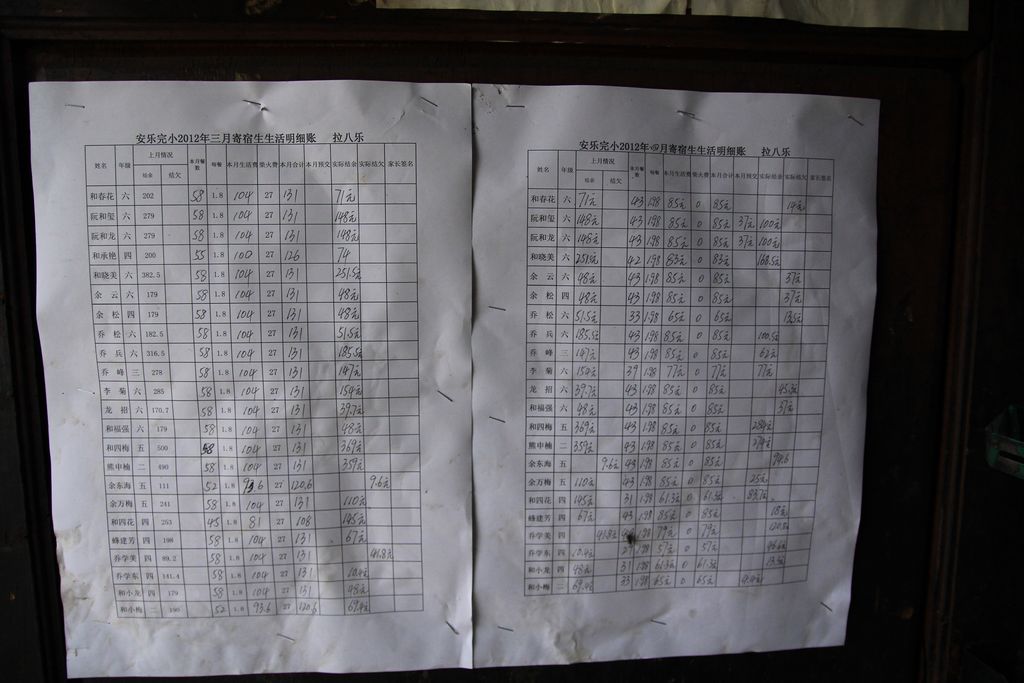 安乐完小2012年三月寄宿生生活明细账 拉八乐
姓名 年级 上月情况 本月餐数 每餐 本月生活费 柴火费 本月合计 本月预交 实际结余 实际结欠 家长签名
结余 结欠
和春花 六 202 58 1.8 104 27 131 71元
阮和玺 六 279 58 1.8 104 27 131 148元
阮和龙 六 279 58 1.8 104 27 131 148元
和承艳 四 200 55 1.8 100 27 126 74
和晓美 六 382.5 58 1.8 104 27 131 251.5元
余云 六 179 58 1.8 104 27 131 48元
余松 四 179 58 1.8 104 27 131 48元
乔松 六 182.5 58 1.8 104 27 131 51.5元
乔兵 六 316.5 58 1.8 104 27 131 185.5元
乔峰 三 278 58 1.8 104 27 131 147元
李菊 六 285 58 1.8 104 27 131 154元
龙招 六 170.7 58 1.8 104 27 131 39.7元
和福强 六 179 58 1.8 104 27 131 48元
和四梅 五 500 58 1.8 104 27 131 369元
熊申楠 二 490 58 1.8 104 27 131 359元
余东海 五 111 52 1.8 93.6 27 120.6 9.6元
余万梅 五 241 58 1.8 104 27 131 110元
和四花 四 253 45 1.8 81 27 108 145元
蜂建芳 四 198 58 1.8 104 27 131 67元
乔学美 四 89.2 58 1.8 104 27 131 41.8元
乔学东 四 141.4 58 1.8 104 27 131 10.4元
和小龙 四 179 58 1.8 104 27 131 48元
和小梅 二 190 52 1.8 93.6 27 120.6 69.4元
安乐完小2012年四月寄宿生生活明细账 拉八乐
姓名 年级 上月情况 本月餐数 每餐 本月生活费 柴火费 本月合计 本月预交 实际结余 实际结欠 家长签名
结余 结欠
和春花 六 71元 43 1.98 85元 0 85元 14元
阮和玺 六 148元 43 1.98 85元 0 85元 37元 100元
阮和龙 六 148元 43 1.98 85元 0 85元 37元 100元
和晓美 六 251.5元 42 1.98 83元 0 83元 168.5元
余云 六 48元 43 1.98 85元 0 85元 37元
余松 四 48元 43 1.98 85元 0 85元 37元
乔松 六 51.5元 33 1.98 65元 0 65元 13.5元
乔兵 六 185.5元 43 1.98 85元 0 85元 100.5元
乔峰 三 147元 43 1.98 85元 0 85元 62元
李菊 六 154元 39 1.98 77元 0 77元 77元
龙招 六 39.7元 43 1.98 85元 0 85元 45.3元
和福强 六 48元 43 1.98 85元 0 85元 37元
和四梅 五 369元 43 1.98 85元 0 85元 284元
熊申楠 二 359元 43 1.98 85元 0 85元 274元
余东海 五 9.6元 43 1.98 85元 0 85元 94.6
余万梅 五 110元 43 1.98 85元 0 85元 25元
和四花 四 145元 31 1.98 61.3元 0 61.3元 83.7元
蜂建芳 四 67元 43 1.98 85元 0 85元 18元
乔学美 四 41.8元 1.98 79元 0 79元 120.8元
乔学东 四 10.4元 29 1.98 57元 0 57元 46.6元
和小龙 四 48元 31 1.98 61.3元 0 61.3元 13.3元
和小梅 二 69.4元 33 1.98 65元 0 65元 4.4元